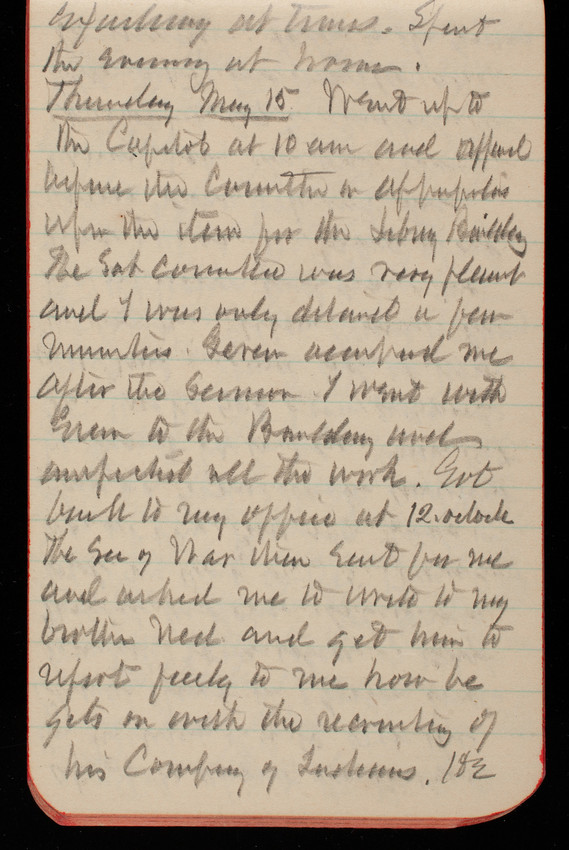 at times. Spent
the evening at home.
Thursday May 15 Went up to
the Capitol at 10 am and appeared
before the Committee on appropriations
upon the item for the Library Building
The Sub committee was very pleasant
and I was only detained a few
minutes. Green accompanied me
after the session I went with
Green to the Building and
inspected all the work. Got
back to my office at 12 oclock
The Sec of War then sent for me
and asked me to write to my
brother Ned and get him to
report freely to me how he
gets on with the recruiting of
his Company of Indians.